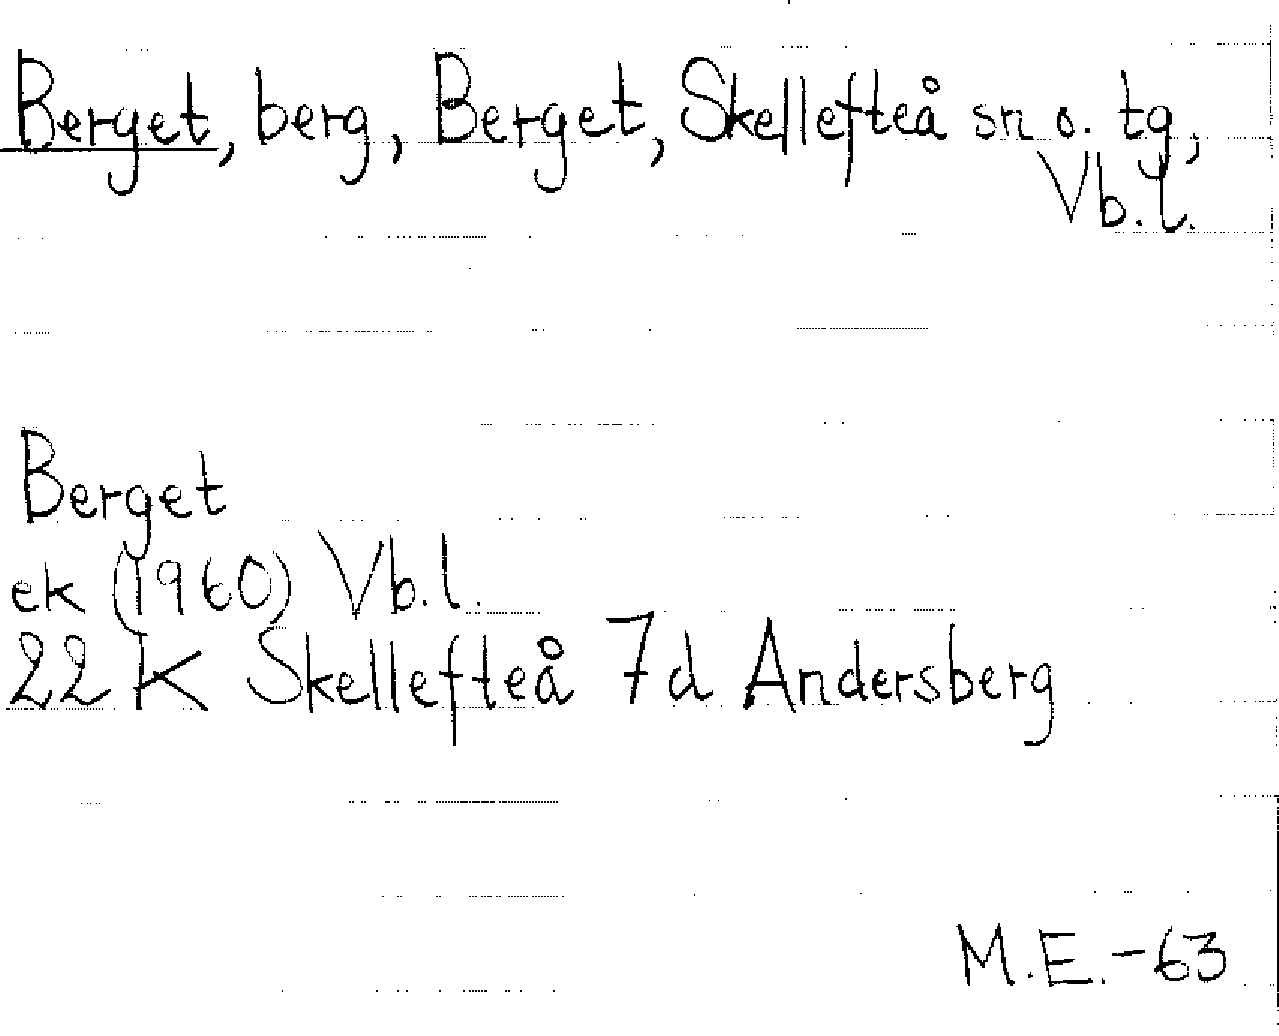 Berget, berg, Berget, Skellefteå sn o. tg,
Vb.l.
Berget
ek (1960) Vb.l.
22 K Skellefteå 7d Andersberg
M.E.-63